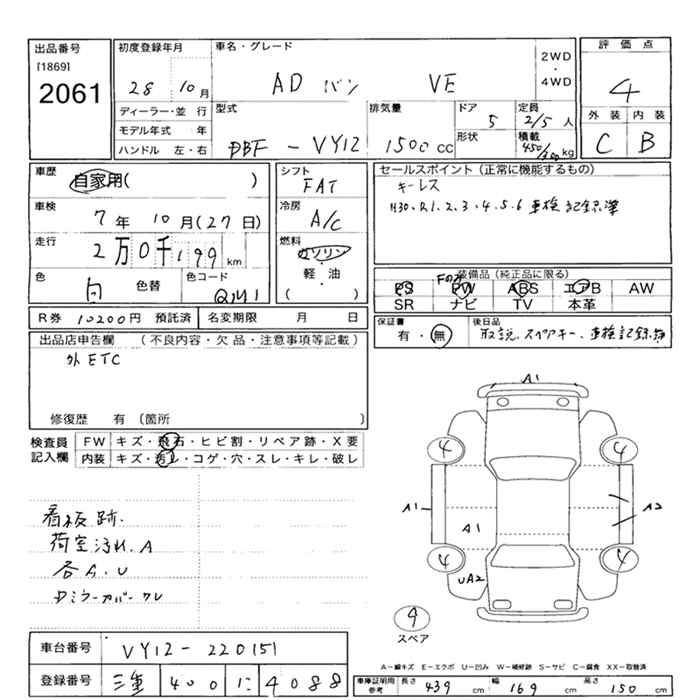 出品番号
[1869]
2061
初度登録年月
28 10月
車名・グレード
AD バン VE
2WD
・
4WD
評価点
4
ディーラー・並 行
モデル年式 年
ハンドル 左・右
型式
DBF - VY12
排気量
1500 cc
ドア
5
形状
定員
2/5 人
積載
450/300 kg
外装 内装
C B
車歴
自家用( )
車検
7年 10月(27日)
走行
2万0千199 km
色
白
色替
色コード
QM1
シフト
FAT
冷房
A/C
燃料
ガソリン
・
軽・油
( )
セールスポイント(正常に機能するもの)
キーレス
H30、R1、2、3、4、5、6 車検 記録簿
装備品(純正品に限る)
Fのみ
PS PW ABS エアB AW
SR ナビ TV 本革
R券 10200円 預託済
名変期限 月 日
保証書
有・無
後日品
取説、スペアキー、車検記録簿
出品店申告欄 (不良内容・欠品・注意事項等記載)
外 ETC
修復歴 有(箇所 )
検査員
記入欄
FW キズ・飛石・ヒビ割・リペア跡・X要
内装 キズ・汚レ・コゲ・穴・スレ・キレ・破レ
看板跡.
荷室汚れ.A
各A.U
ミラーカバーワレ
A1
4 4
A1 A1 A2
4 4
UA2
4
スペア
車台番号 VY12-220151
登録番号 三重 400 に 4088
A－線キズ E－エクボ U－凹み W－補修跡 S－サビ C－腐食 XX－取替済
車庫証明用
参考
長さ 439 cm 幅 169 cm 高さ 150 cm